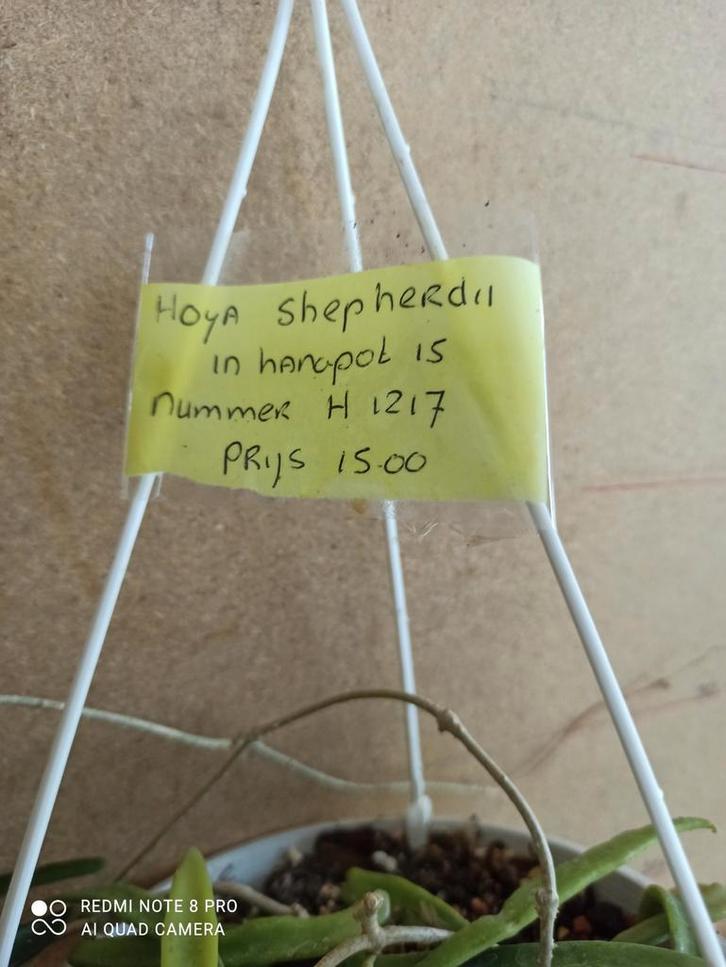 HOYA Shepherdii
in hangpot 15
nummer H 1217
PRIJS 15.00
REDMI NOTE 8 PRO
AI QUAD CAMERA